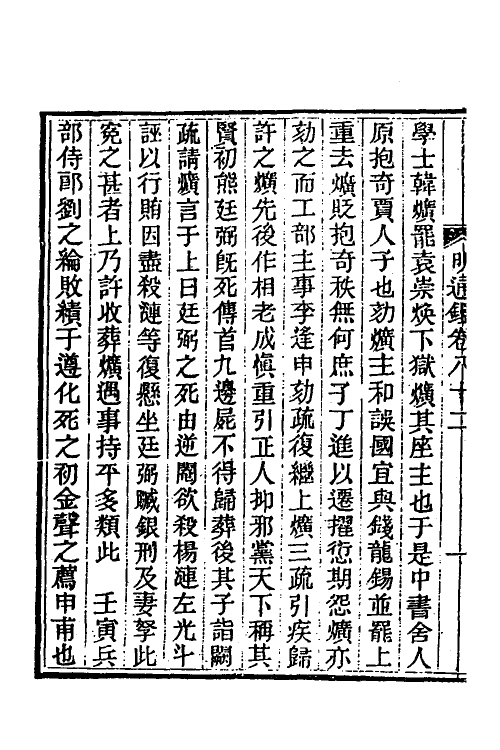 明通鑑卷八十二
學士韓爌罷袁崇煥下獄爌其座主也于是中書舍人
原抱奇賈人子也劾爌主和誤國宜與錢龍錫並罷上
重去爌貶抱奇秩無何庶子丁進以遷擢愆期怨爌亦
劾之而工部主事李逢申劾疏復繼上爌三疏引疾歸
許之爌先後作相老成愼重引正人抑邪黨天下稱其
賢初熊廷弼旣死傳首九邊屍不得歸葬後其子詣闕
疏請爌言于上曰廷弼之死由逆閹欲殺楊漣左光斗
誣以行賄因盡殺漣等復懸坐廷弼贓銀刑及妻孥此
寃之甚者上乃許收葬爌遇事持平多類此　壬寅兵
部侍郎劉之綸敗績于遵化死之初金聲之薦申甫也